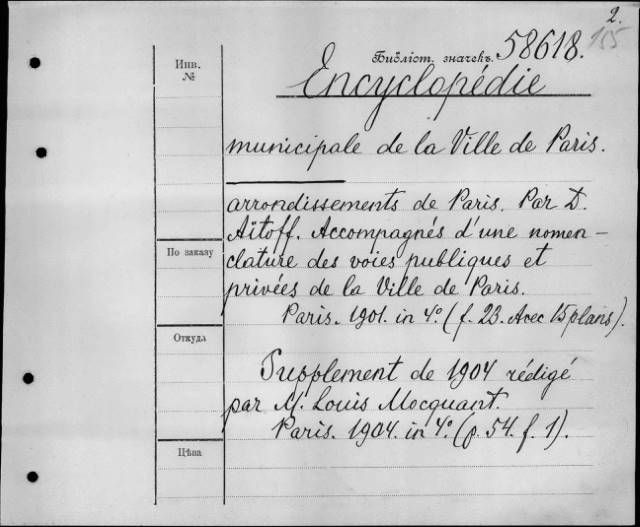 2.
155
Инв.
№
Библіот. значекъ. 58618.
Encyclopédie
municipale de la Ville de Paris.
arrondissements de Paris. Par D.
Aïtoff. Accompagnés d'une nomen-
clature des voies publiques et
По заказу
privées de la Ville de Paris.
Paris. 1901. in 4º. (f. 23. Avec 15 plans).
Откуда
Supplement de 1904 rédigé
par M. Louis Mocquant.
Paris. 1904. in 4º. (p. 54. f. 1).
Цѣна